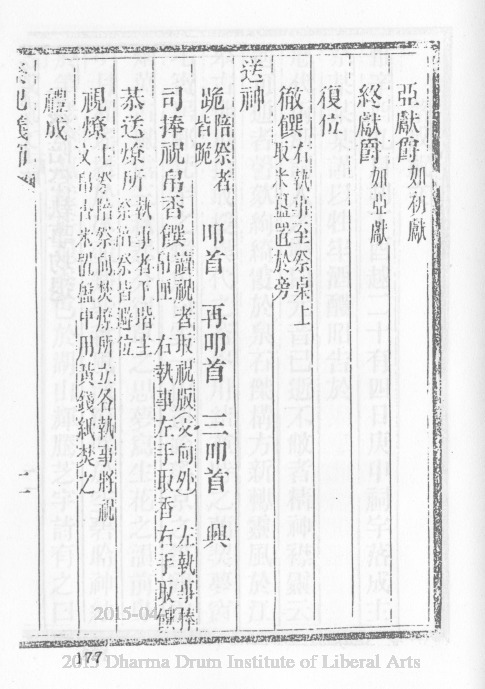 亞獻爵如初獻
終獻爵如亞獻
復位
徹饌右執事至祭桌上取米盤置於旁
送神
跪陪祭者皆跪 叩首 再叩首 三叩首 興
司捧祝帛香饌讀祝者取祝版(文向外)左執事捧帛匣右執事左手取香右手取饌
恭送燎所執事者下堦主祭陪祭皆避位
視燎主祭陪祭向焚燎所立各執事將祝文帛香米置盤中用黃錢紙焚之
禮成
二
177
2015-04
2015 Dharma Drum Institute of Liberal Arts